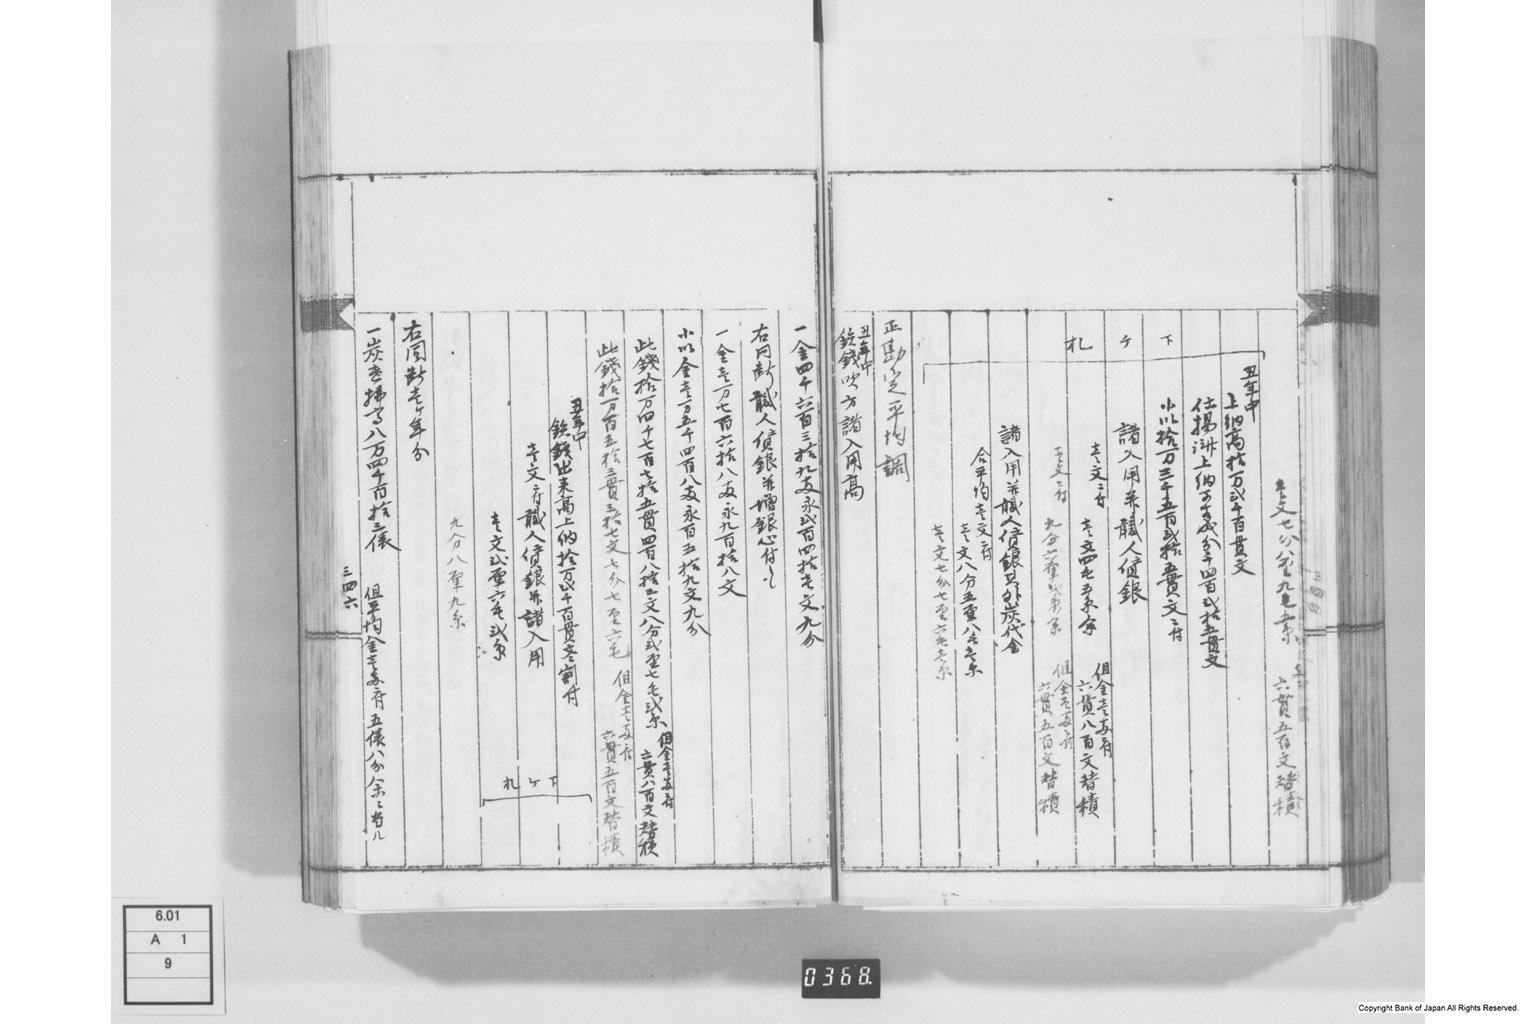 壱文七分八厘九毛五糸
六貫五百文替積
丑年中
上納高拾万弐千百貫文
仕揚洲上納
千四百弐拾五貫文
小以拾万三千五百弐拾五貫文ニ付
諸入用并職人賃銀
壱文ニ付
壱文四毛五糸余
但金壱両ニ付
六貫八百文替積
壱文ニ付
九分六厘弐糸
但金壱両ニ付
六貫五百文替積
下ケ札
諸入用并職人賃銀其外炭代金
合平均壱文ニ付
壱文八分五厘八毛壱糸
壱文七分七厘六毛壱糸
正勘定平均調
丑年中
鉄銭吹方諸入用高
一金四千六百三拾九両永弐百四拾壱文九分
右同断職人賃銀并増銀心付とも
一金壱万七百六拾八両永九百拾八文
小以金壱万五千四百八両永百五拾九文九分
此銭拾万四千七百七拾五貫四百八拾三文八分弐厘七毛弐糸
但金壱両ニ付
六貫八百文替積
此銭拾万百五拾三貫三拾七文七分七厘六毛
但金壱両ニ付
六貫五百文替積
丑年中
鉄銭出来高上納拾万弐千百貫文割付
壱文ニ付職人賃銀并諸入用
壱文弐厘六毛弐糸
九分八厘九糸
下ケ札
右同断壱ケ年分
一炭壱拂高八万四千百拾三俵
但平均金壱両ニ付五俵八分余ニ当ル
三四六
6.01
A 1
9
0368.
Copyright Bank of Japan All Rights Reserved.